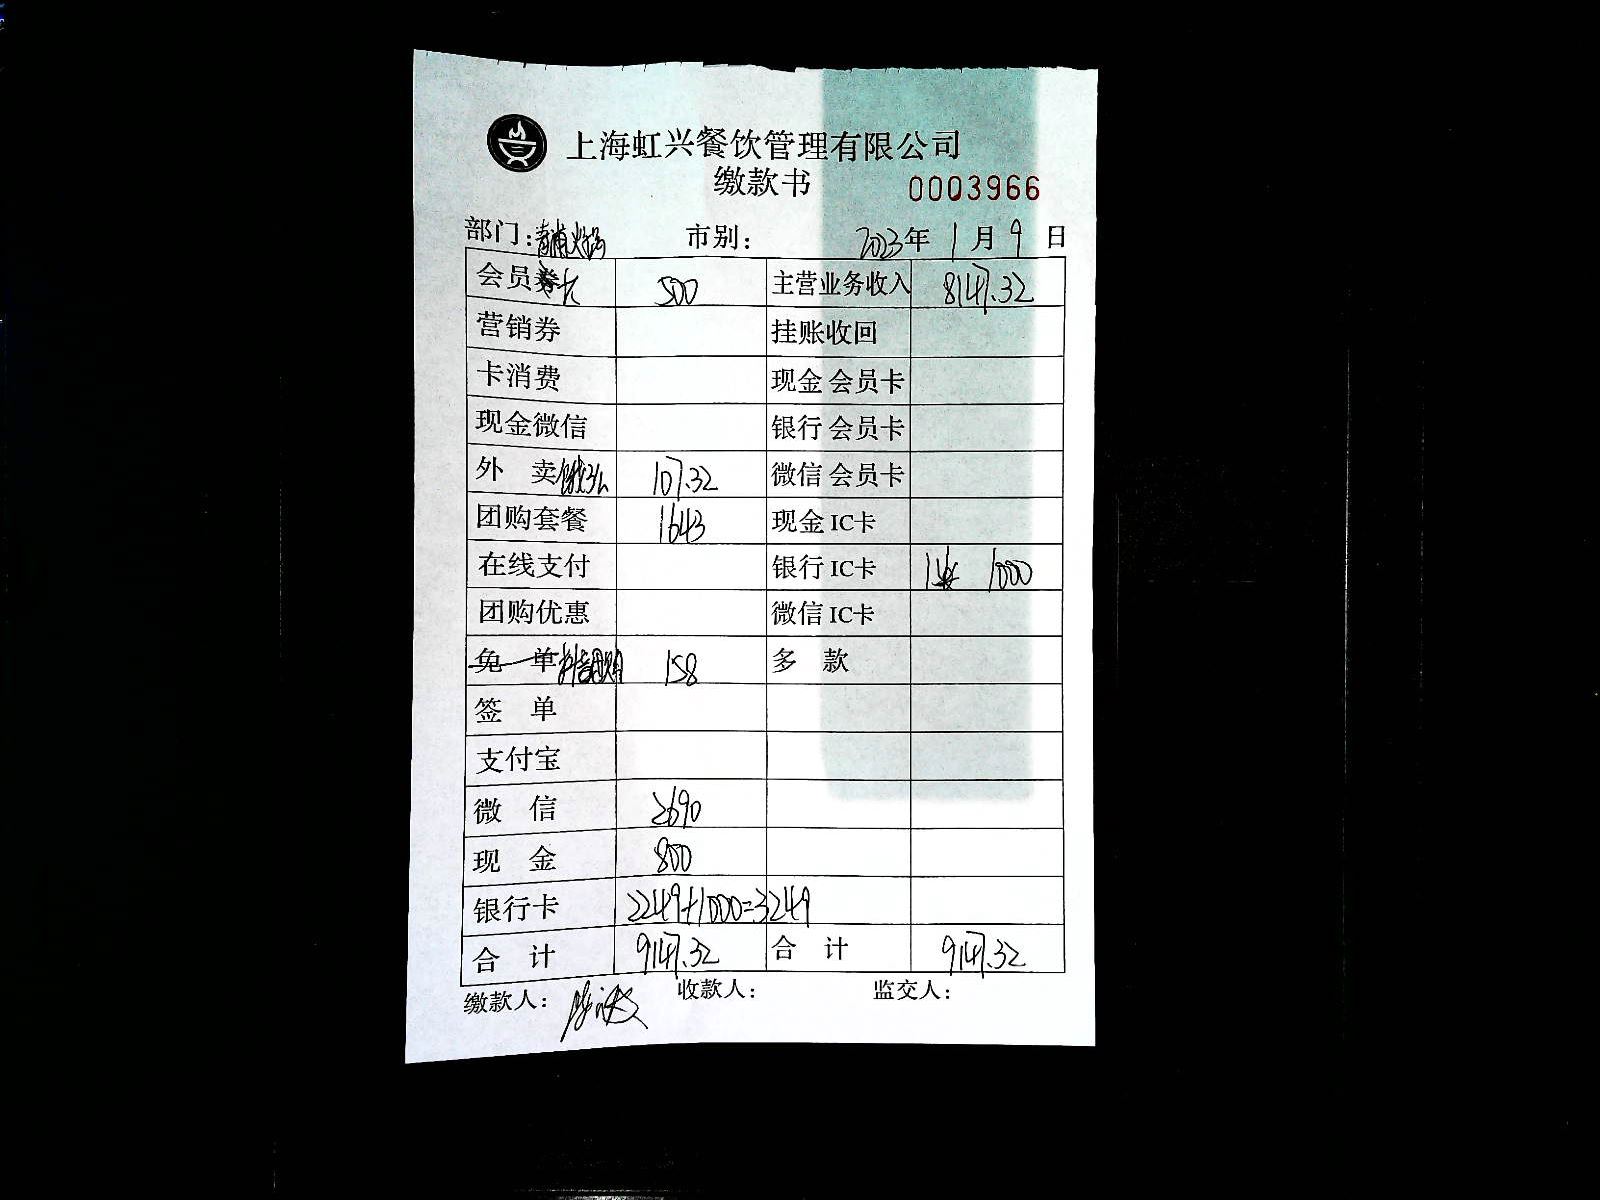 上海虹兴餐饮管理有限公司
缴款书 0003966
部门: 青浦火锅 市别: 2023年 1月 9日
会员卡 500 主营业务收入 8147.32
营销券 挂账收回
卡消费 现金会员卡
现金微信 银行会员卡
外 卖 107.32 微信会员卡
团购套餐 1643 现金IC卡
在线支付 银行IC卡 1张 1000
团购优惠 微信IC卡
免 单 抖音团购 158 多 款
签 单
支付宝
微 信 2690
现 金 800
银行卡 2249+1000=3249
合 计 9147.32 合 计 9147.32
缴款人: 收款人: 监交人: